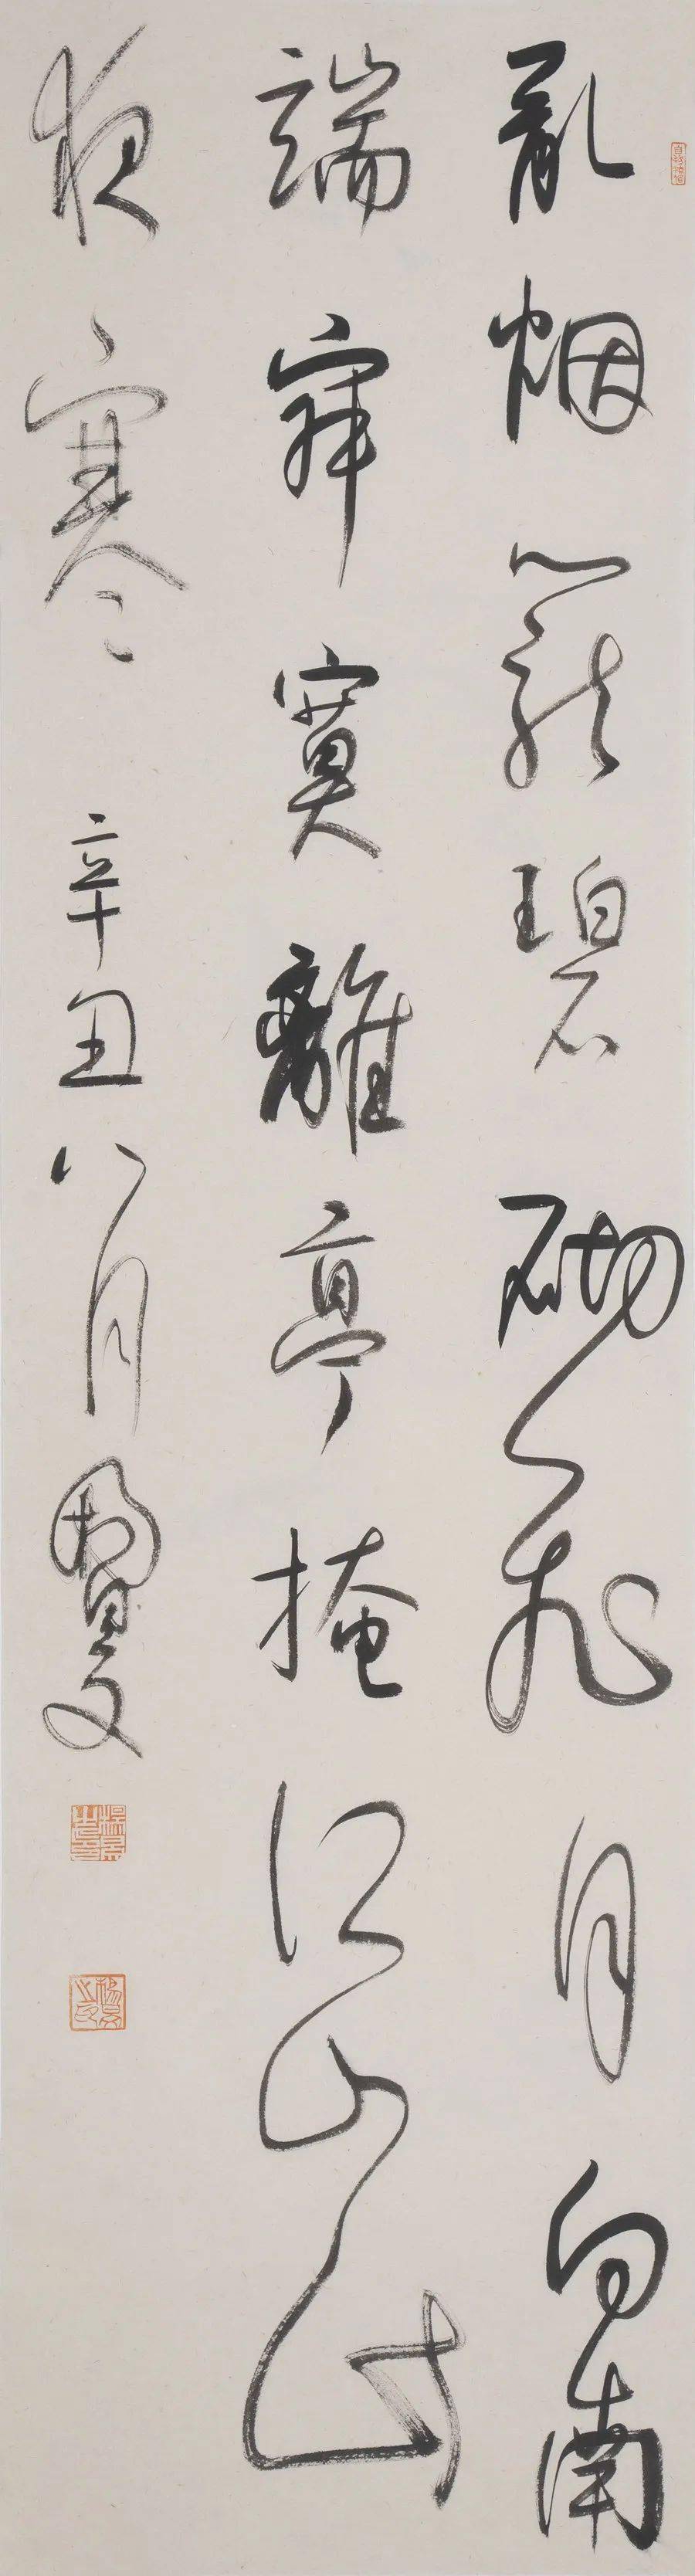 亂烟籠碧砌飛月向南
端寂寞離亭掩江山此
夜寒 辛丑八月